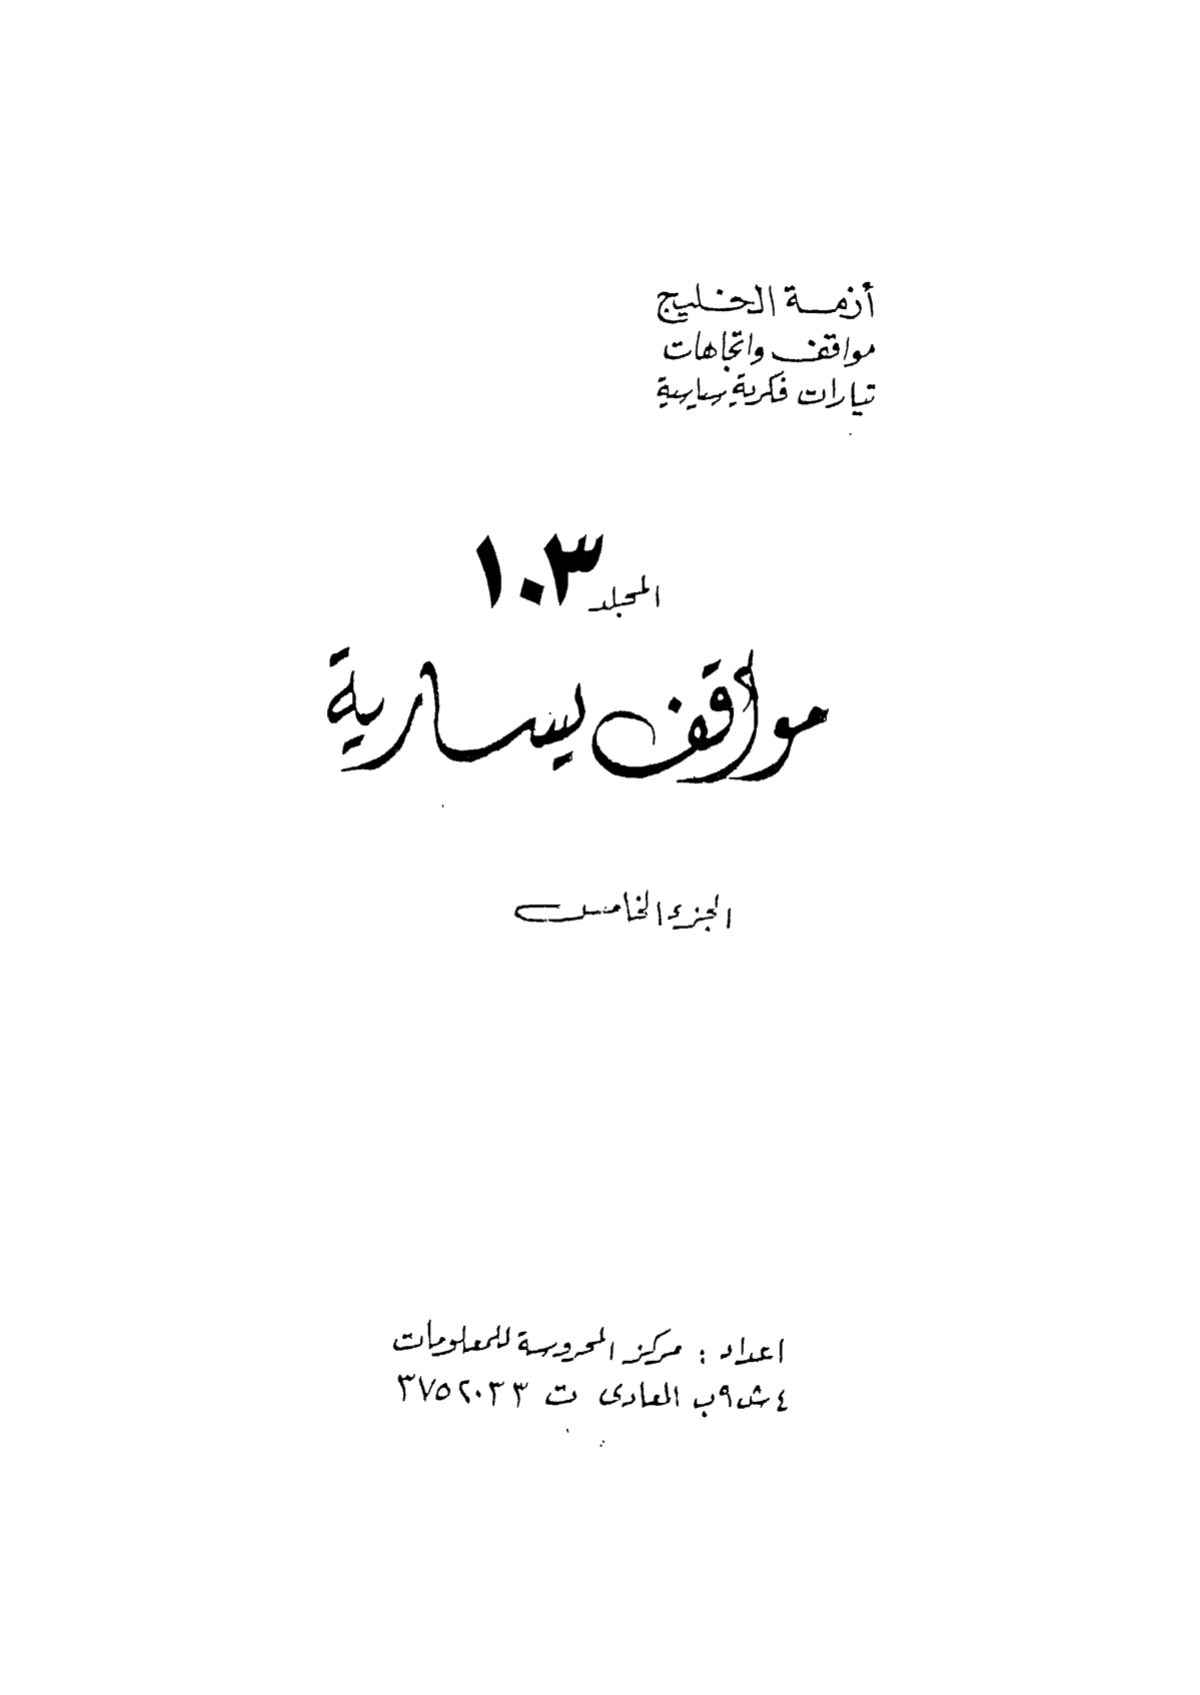 أزمة الخليج
مواقف واتجاهات
تيارات فكرية سياسية
المجلد ١٠٣
مواقف يسارية
الجزء الخامس
اعداد : مركز المحروسة للمعلومات
٤ ش ٩ب المعادى ت ٣٧٥٢٠٣٣